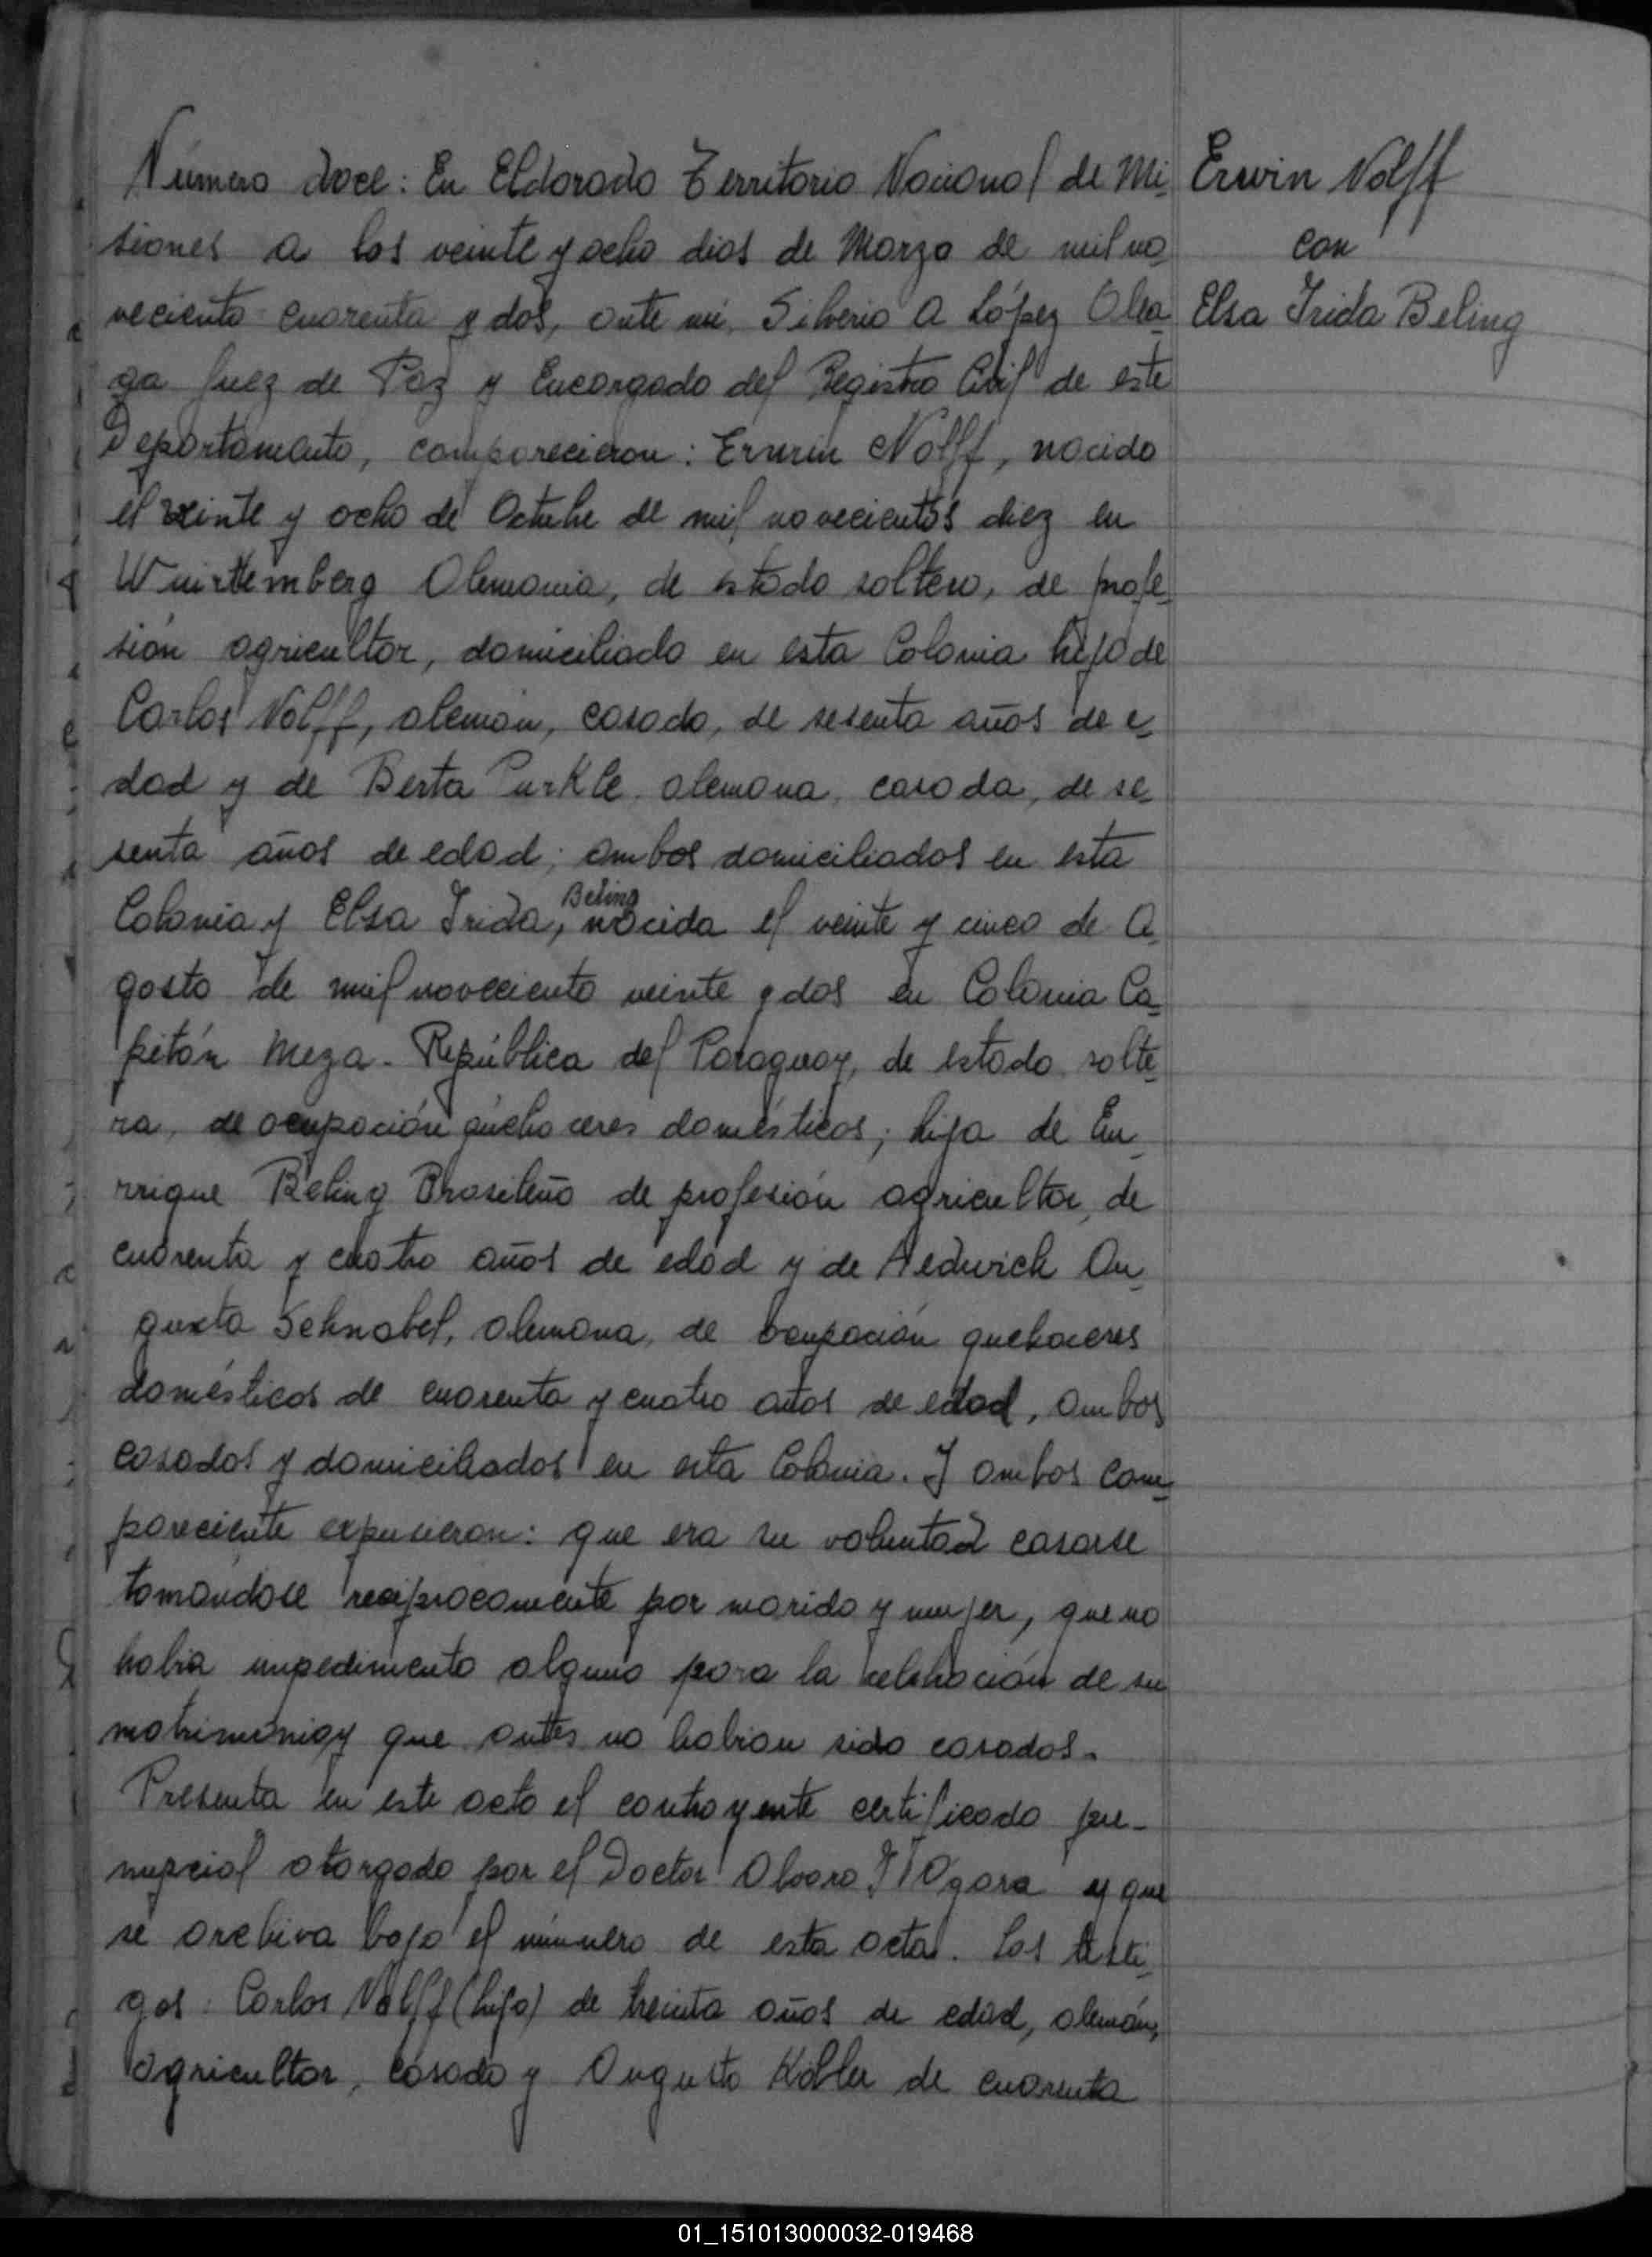 Número doce: En Eldorado Territorio Nacional de Mi-
siones a los veinte y ocho dias de Marzo de mil no-
veciento cuarenta y dos, ante mi, Silverio A López Olea-
ga Juez de Paz y Encargado del Registro Civil de este
Departamento, comparecieron: Erwin Nolff, nacido
el veinte y ocho de Octubre de mil novecientos diez en
Wuirttemberg Alemania, de estado soltero, de profe-
sión agricultor, domiciliado en esta Colonia hijo de
Carlos Nolff, aleman, casado, de sesenta años de e-
dad y de Berta Purkle, alemana, casada, de se-
senta años de edad; ambos domiciliados en esta
Colonia y Elsa Irida, Beling nacida el veinte y cinco de A-
gosto de mil noveciento veinte y dos en Colonia Ca-
pitán Meza - República del Paraguay, de estado solte-
ra, de ocupación quehaceres domésticos; hija de En-
rrique Beling Brasileño de profesión agricultor, de
cuarenta y cuatro años de edad y de Hedwich Au-
gusta Schnabel, alemana, de ocupación quehaceres
domésticos de cuarenta y cuatro años de edad, ambos
casados y domiciliados en esta Colonia. Y ambos com-
pareciente expusieron: que era su voluntad casarse
tomándose reciprocamente por marido y mujer, que no
habia impedimento alguno para la celebración de su
matrimonio y que antes no habian sido casados.
Presenta en este acto el contrayente certificado pre-
nupcial otorgado por el Doctor Alvaro Ogara y que
se archiva bajo el número de esta acta. Los testi-
gos: Carlos Nolff (hijo) de treinta años de edad, alemán,
agricultor, casado y Augusto Kobler de cuarenta
Erwin Nolff
con
Elsa Irida Beling
01_151013000032-019468